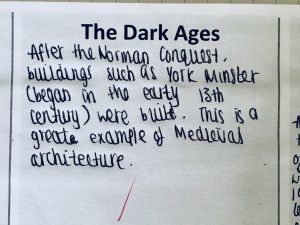 The Dark Ages
After the Norman Conquest,
buildings such as York Minster
(began in the early 13th
century) were built. This is a
great example of Medieval
architecture.